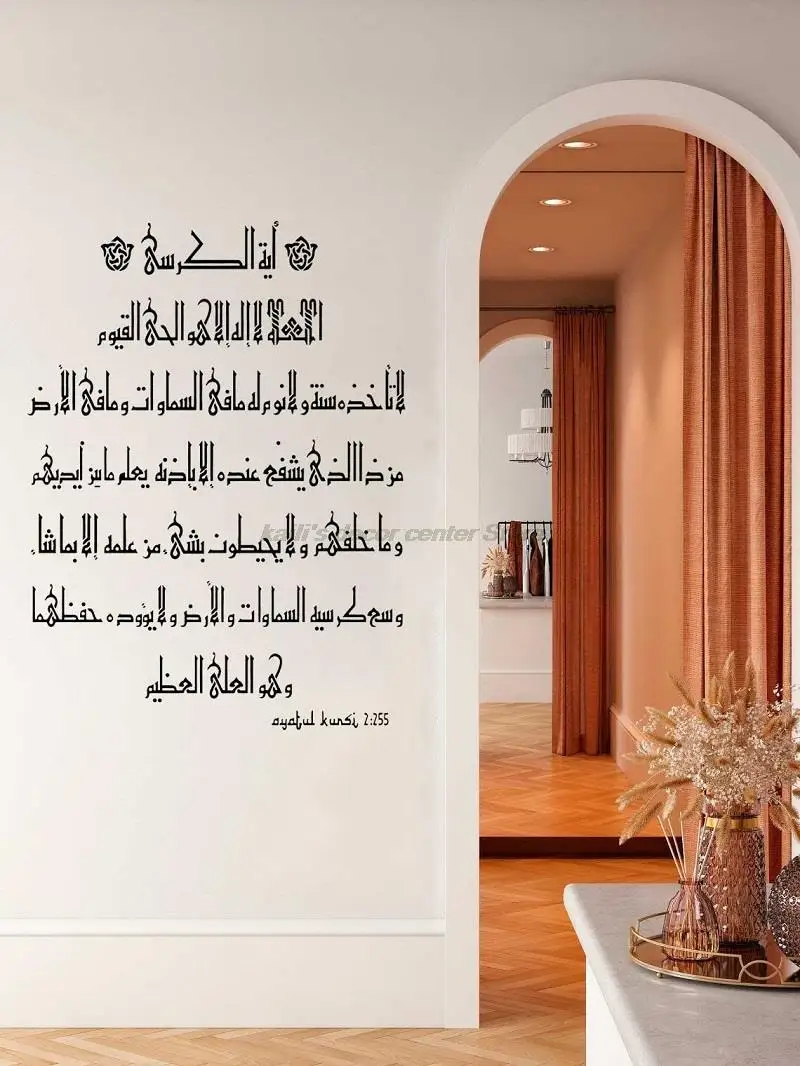 أية الكرسى
الله لا إله إلا هو الحى القيوم
لا تأخذه سنة و لا نوم له مافى السماوات و مافى الأرض
من ذا الذى يشفع عنده إلا بإذنه يعلم مابين أيديهم
و ما خلفهم و لا يحيطون بشىء من علمه إلا بماشاء
kaili's decor center
وسع كرسيه السماوات و الأرض و لا يؤوده حفظهما
وهو العلى العظيم
ayatul kursi 2:255